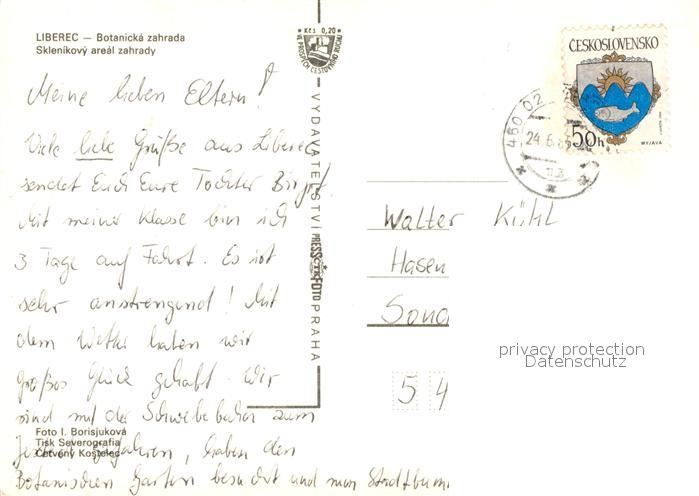 LIBEREC – Botanická zahrada
Skleníkový areál zahrady
Kčs 0,20
VE PROSPĚCH CESTOVNÍHO RUCHU
ČESKOSLOVENSKO
50h
MYJAVA
460 02
24.6.
Meine lieben Eltern!
Viele liebe Grüße aus Liberec
sendet Euch Eure Tochter Birgit.
Mit meiner Klasse bin ich
3 Tage auf Fahrt. Es ist
sehr anstrengend! Mit
dem Wetter haben wir
großes Glück gehabt. Wir
sind mit der Schwebebahn zum
gefahren, haben den
Botanischen Garten besucht und nun Stadtbum
VYDAVATELSTVÍ PRESSFOTO PRAHA
Walter Kühl
Hasen
Sond
5 4
privacy protection
Datenschutz
Foto I. Borisjuková
Tisk Severografia
Červený Kostelec